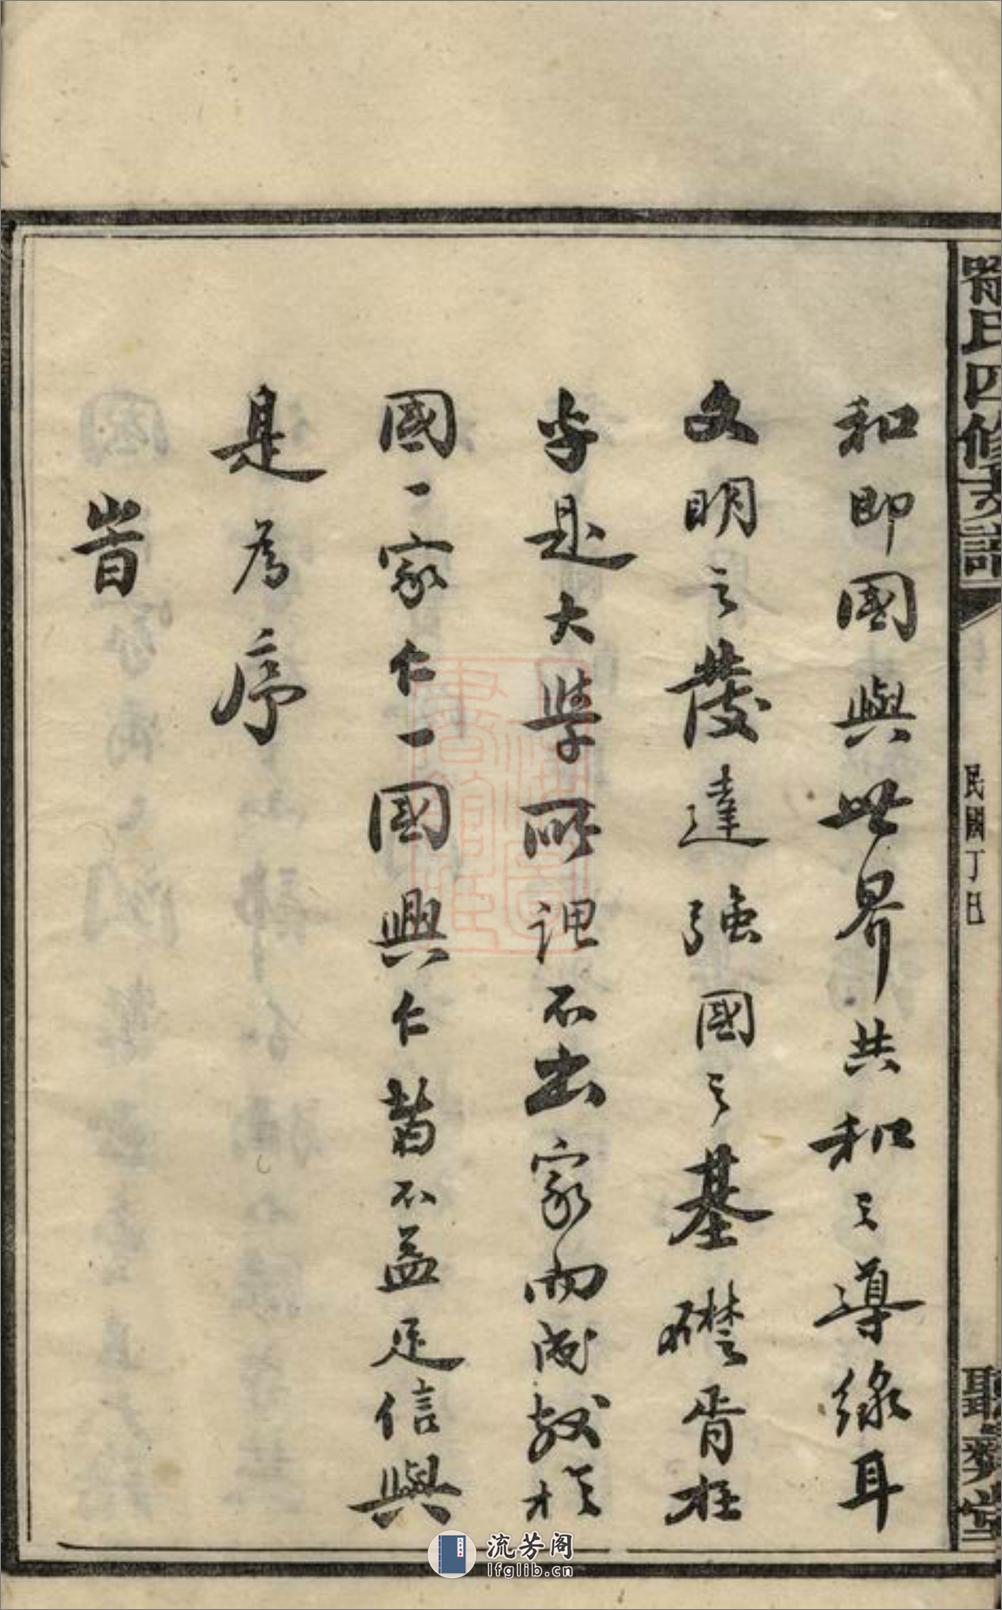 氏四修支譜
民國丁丑
和即國與世界共和之導線耳
文明之發達強國之基礎胥在
乎是大學所謂不出家而成教於
國一家仁一國興仁不益足信與
是為序
旹
流芳阁
lfglib.cn